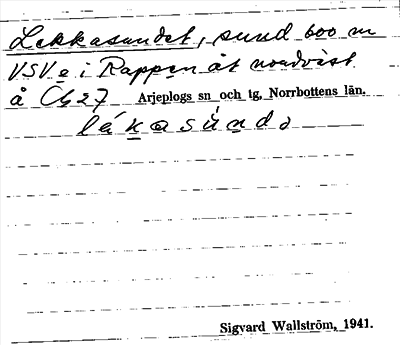 Lekkasundet, sund 600 m
VSV e i Rappen åt nordväst
å Cg 27 Arjeplogs sn och tg, Norrbottens län.
lákasúndə
Sigvard Wallström, 1941.